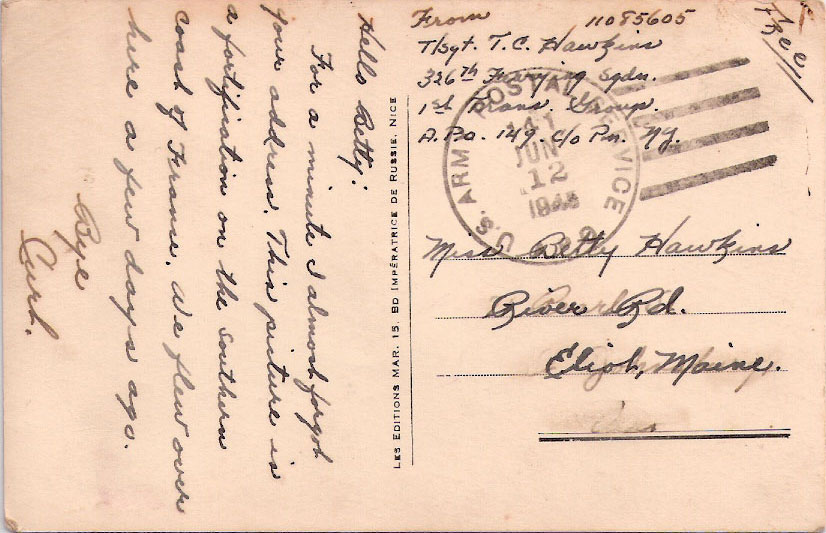 Hello Betty:
For a minute I almost forgot
your address. This picture is
a fortification on the southern
coast of France. We flew over
here a few days ago.
Bye
Curt.
LES EDITIONS MAR, 15, BD IMPÉRATRICE DE RUSSIE, NICE
From 11085605
T/Sgt. T.C. Hawkins
326th Ferrying Sqdn.
1st Trans. Group.
A.P.O. 149. c/o Pm. NY.
Free
U.S. ARMY POSTAL SERVICE
141
JUN
12
1945
Miss Betty Hawkins
River Rd.
Eliot, Maine.